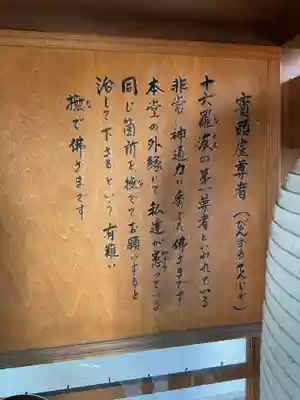 賓頭盧尊者(びんずるそんじゃ)
十六羅漢の第一尊者といわれている
非常に神通力に秀でた佛さまです
本堂の外縁にて私達が患っている
同じ箇所を撫でてお願いすると
治して下さるという有難い
撫で佛さまです